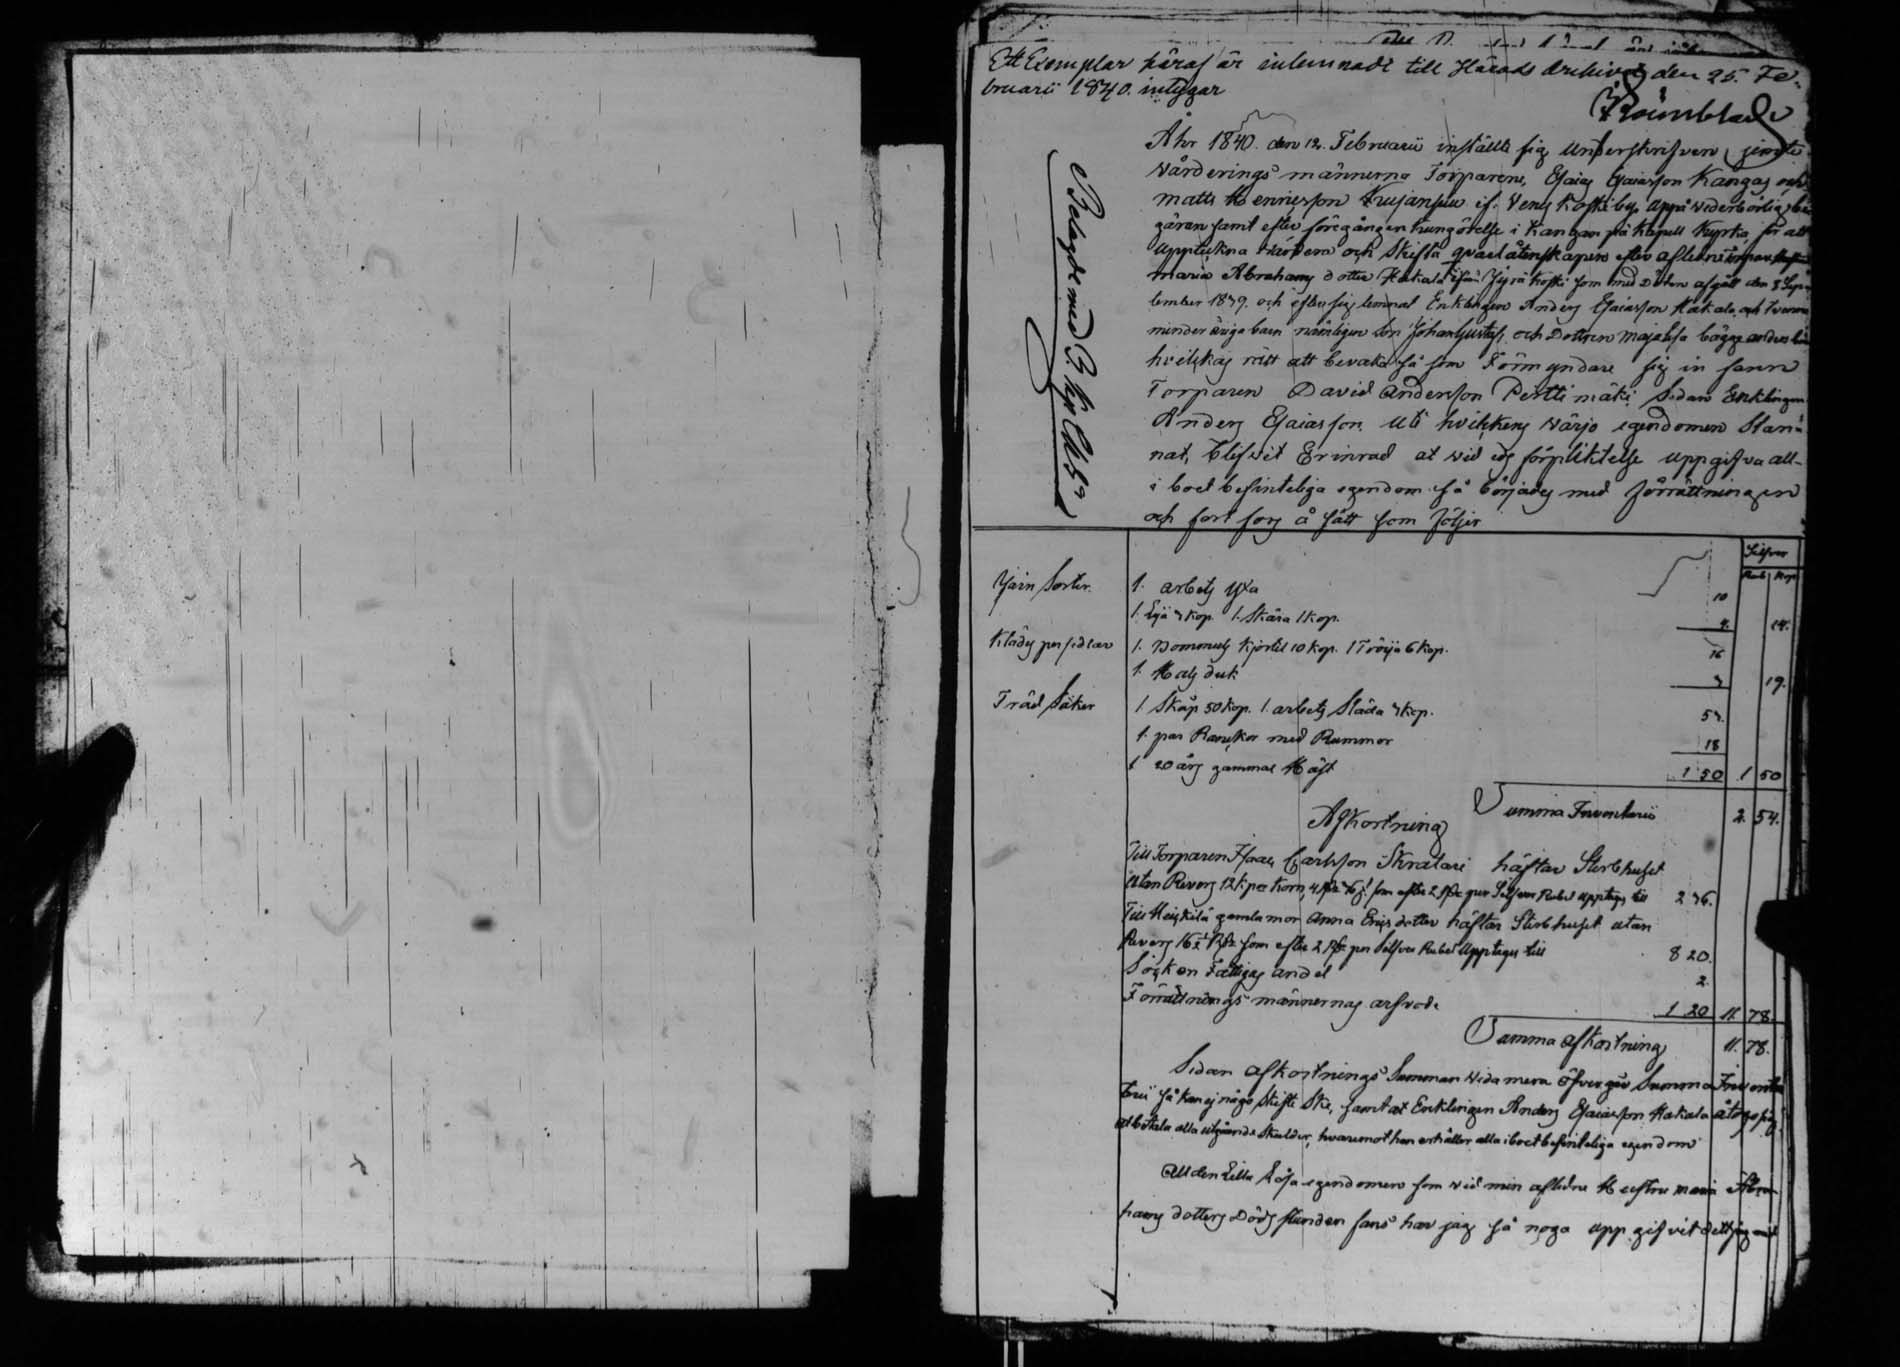 Ett Exemplar häraf är inlemnadt till Härads Arkivet den 25. Fe-
bruarii 1840. intygar
Åhr 1840. den 12. Februarii instälte sig Underskrifven jemte
Värderings männerna Torparene, Esaias Esaiasson Kangas och
matts Hennersson i Koski by, uppå vederbörlig be
gäran samt efter föregången kungörelse i Kangan på Kapell Kyrka, för att
uppteckna värdera och Skifta qvarlåtenskapen efter aflidne
maria Abrahams dotter Hakala ifrån Jyrä koski som med Döden afgått den 8 Sep
tember 1839. och efter sig lemnat Enklingen Anders Esaiasson Hakala, och tvenne
minder åriga barn nämligen Son Johan Gustaf, och Dottren Majalisa bägge
hvilkas rätt att bevaka så som Förmyndare sig in fann
Torparen David Andersson Perttimäki, Sedan Enklingen
Anders Esaiasson. Uti hvilkens värjo egendomen Stan-
nat, blifvit Erinrad at vid eds förpliktelse uppgifva all-
i boet befinteliga egendom så börjades med förrättningen
och fort fors å sätt som följer
Belagde med 3 kop
Silfver
Rub Kop
Järn Sorter. 1. arbets yxa 10
1. Lija 3 kop. 1. Skära 1 kop. 4. 14.
Kläds persedlar 1. Dommuls kjortel 10 kop. 1 Tröija 6 kop. 16
1. Hals duk 3 19.
Träd Saker 1 Skåp 50 kop. 1. arbets Släda 3 kop. 53.
1. par med Rummor 18
1 20 års gammal Häst 1 50 1 50
Summa Inventarii 2. 54.
Afkortning
Till Torparen Isaac Carlsson Skratari häftar Sterbhuset
utan Revers som efter 2 per Silfver Rubel upptages till 2 36.
Till Heiskilä gamla mor Anna Erics dotter häftar Sterbhuset utan
Revers 16 som efter 2 per Silfver Rubel Upptages till 8 20.
Socken Fattigas andel 2.
Förrättnings männernas arfvode 1 20 11. 78.
Summa afkortning 11. 78.
Sedan afkortnings Summan vida mera öfvergår Summa Inventa
rii så kan ej någo Skifte Ske, samt at Enklingen Anders Esaiasson Hakala åtog sig
at betala alla utgående Skulder, hvaremot han erhåller alla i boet befinteliga egendom
All den Lilla Lösa egendomen som vid min aflidne Heustru maria Abra
hams dotters Döds stunden fans har jag så noga upp gifvit